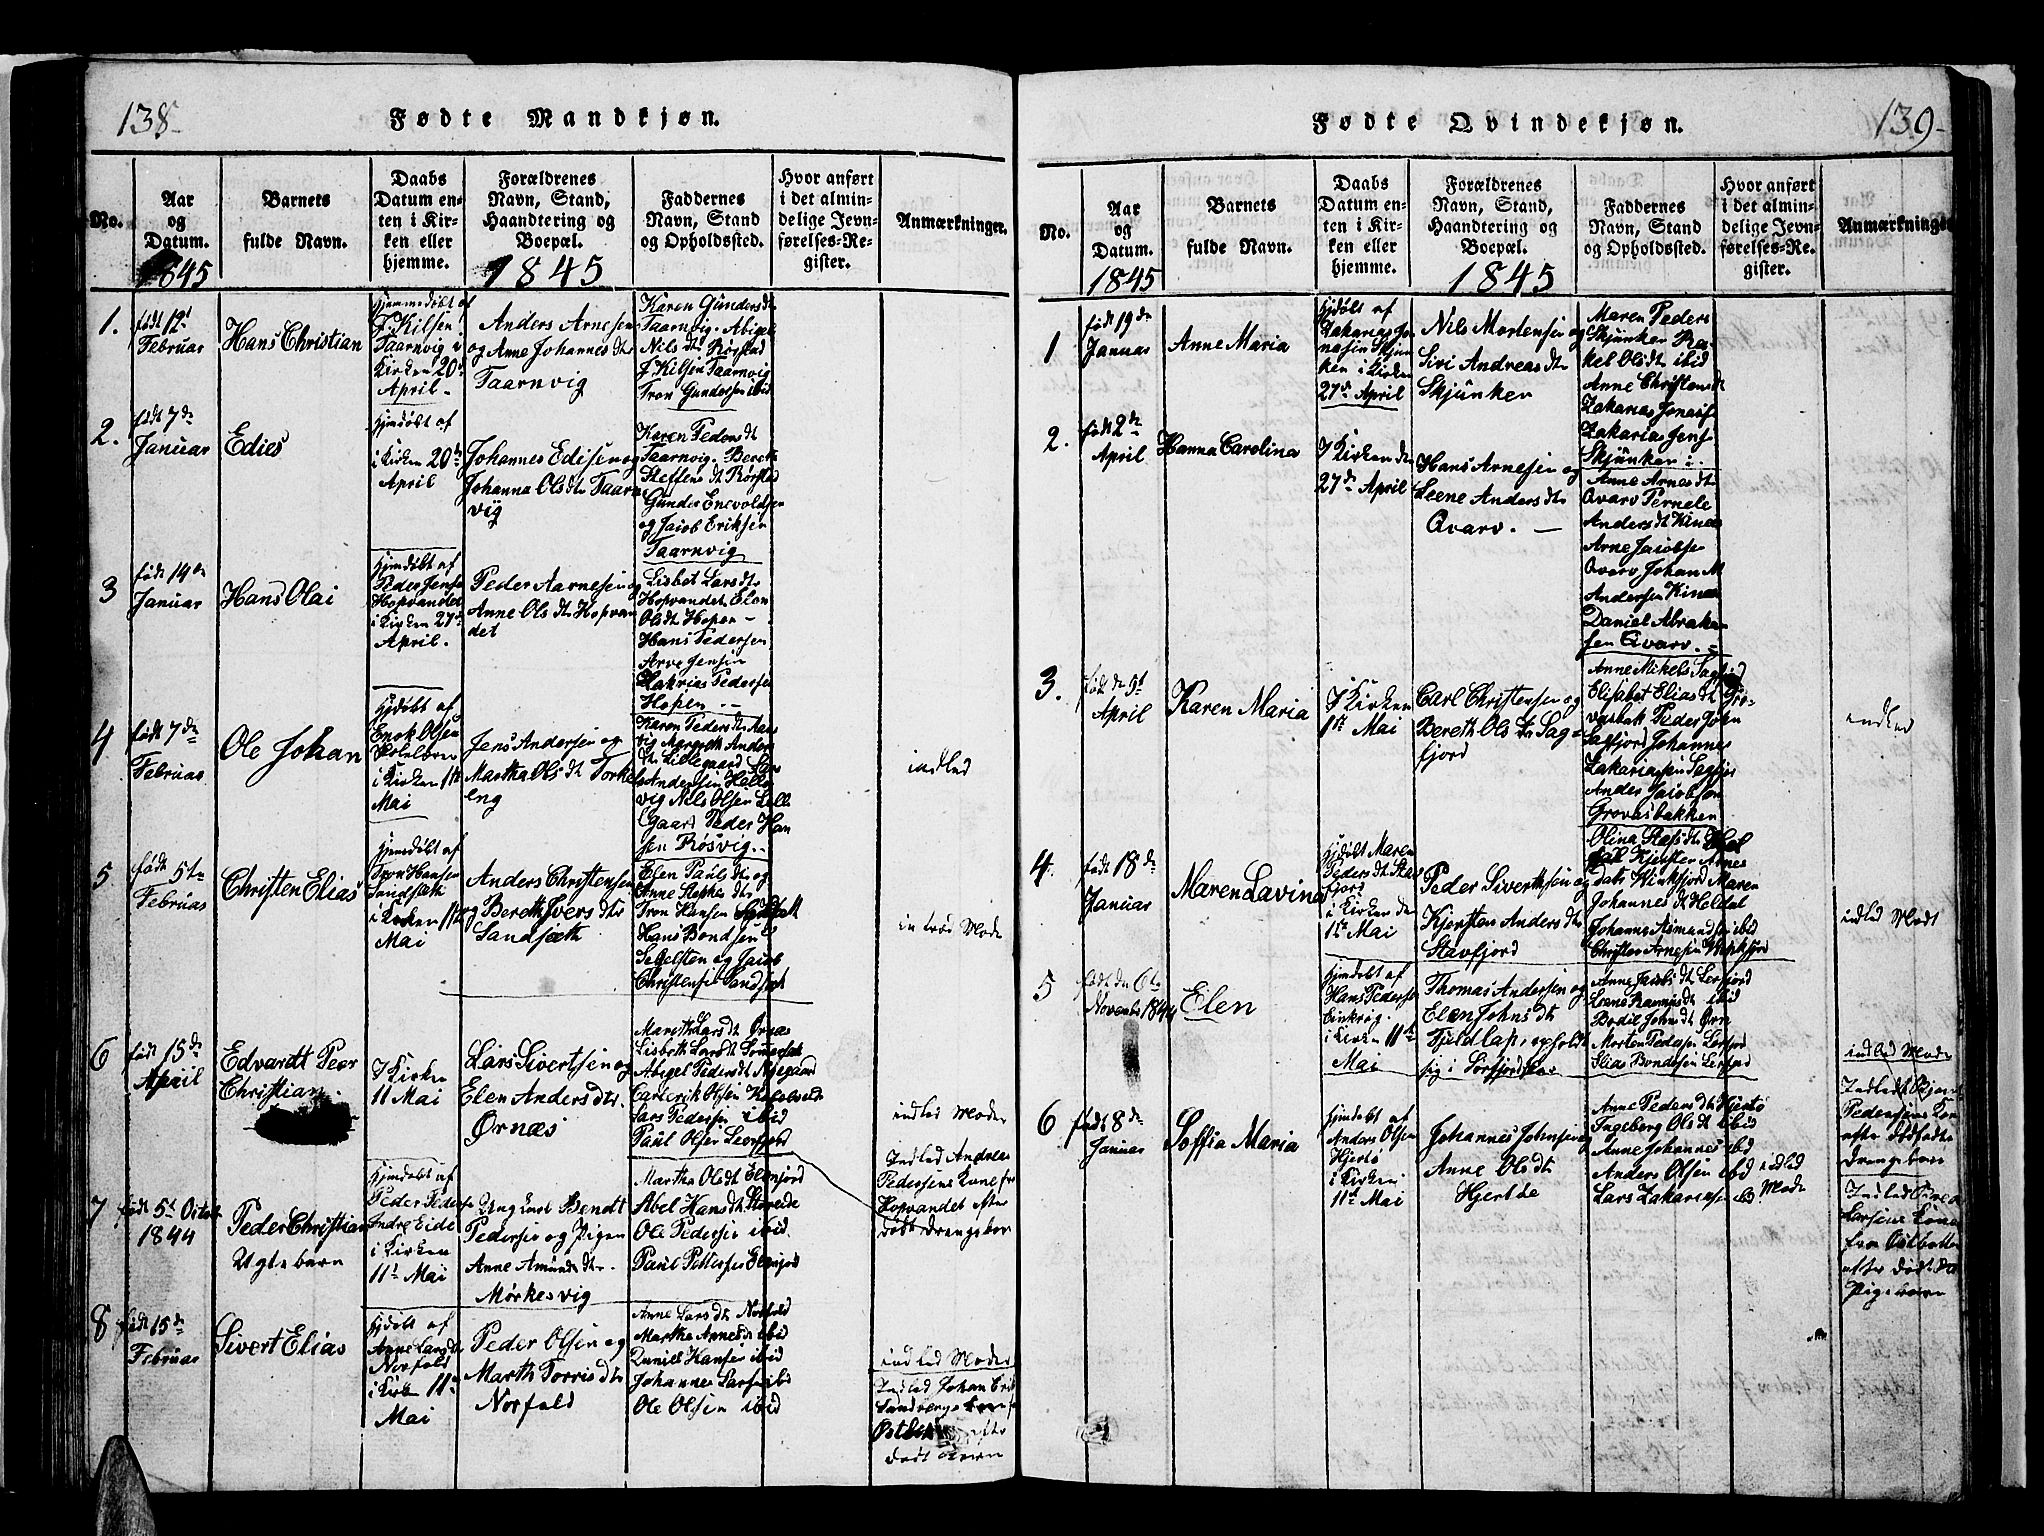 138.
Fødte Mandkjøn.
No.
Aar
og
Datum.
1845
Barnets
fulde Navn.
Daabs
Datum en-
ten i Kir-
ken eller
hjemme.
Forældrenes
Navn, Stand,
Haandtering og
Boepæl.
1845
Faddernes
Navn, Stand
og Opholdssted.
Hvor anført
i det almin-
delige Jevn-
førelses-Re-
gister.
Anmærkninger.
1.
født 12t
Februar
Hans Christian
Hjemmedøbt af
J. Kilsen
Taarnvig i
Kirken 20d
April
Anders Arnesen
og Anne Johannes dtr
Taarnvig
Karen Gunders dt
Taarnvig. Abigel
Nils dt Røsstad
J. Kilsen Taarnvig
Tron Gundersen ibid
2.
født 7de
Januar
Edies
Hjmdøbt af
i Kirken 20de
April
Johannes Edisen og
Johanna Ols dtr Taarn
vig
Karen Peders dt
Taarnvig. Bereth
Steffens dt Rørstad
Gunder Enevoldsen
og Jacob Eriksen
Taarnvig
3
født 14de
Januar
Hans Olai
Hjemdøbt af
Peder Jensen
Hopvandet
i Kirken 27de
April.
Peder Aarnesen og
Anne Ols dtr Hopvan
det
Lisbet Lars dtr
Hopvandet Elen
Ols dt Hopen
Hans Pedersen
Arve Jensen
Zakrias Pedersen
Hopen.
4
født 7de
Februar
Ole Johan
Hjdøbt af
Enok Olsen
i Kirken 1ste
Mai
Jens Andersen og
Martha Ols dt Torkel
eng
Karen Peders dtr
vig Margreth Anders
dt Lillegaard
Andersen Hells
vig Nils Olsen Lille
Gaard Peder Han
sen Røsvig.
indled
5
født 5te
Februar
Christen Elias
Hjemdøbt af
Tron Hansen
Sandsæth
i Kirken 11te
Mai
Anders Christensen
og Bereth Ivers dtr
Sandsæth
Elen Pauls dtr og
Anne Stephs dtr
Tron Hansen Sandsætt
Hans Bondsen
Segelsten og Jacob
Christensen Sandsæt
introd Mode
6
født 15de
April
Edvardt Peer
Christian
I Kirken
11 Mai
Lars Sivertsen og
Elen Anders dtr.
Ørnæs
Mareth Lars dt Ørnæs
Lisbeth Lars dt
Abigel Peders dt Nygaard
Carl erik Olsen
Lars Pedersen ibid
Paul Olsen Leerfjord
indled Mode
Indled Andreas
Pedersens Kone fra
Hopvandet efter
dødt Drengebarn
7
født 5t Octob
1844
Peder Christian
Ugte barn
Hjemdøbt af
Peder Peders
Andre Eide
i Kirken
11t Mai
Ungkarl Bendt
Pedersen og Pigen
Anne Amunds dtr.
Mörkesvig
Martha Ols dt Elvfjord
Abel Hans dt
Ole Pedersen ibid.
Paul Pettersen Elvfjord
8
født 15de
Februar
Sivert Elias
Hjdøbt af
Anne Lars dt
Norfold
i Kirken 11te
Mai
Peder Olsen og
Marth Torris dtr
Norfold
Anne Lars dt Norfold
Martha Arnes dt ibid
Daniel Hansen ibid
Johannes Larsen ibid
Ole Olsen ibid
indled Moder
Indled Johan Erik
efter
dødt barn
139.
Fødte Qvindekjøn.
No.
Aar
og
Datum.
1845
Barnets
fulde Navn.
Daabs
Datum en-
ten i Kir-
ken eller
hjemme.
Forældrenes
Navn, Stand,
Haandtering og
Boepæl.
1845
Faddernes
Navn, Stand
og Opholdssted.
Hvor anført
i det almin-
delige Jevn-
førelses-Re-
gister.
Anmærkninger
1
født 19de
Januar
Anne Maria
Hjdøbt af
Zakarias Jo
nasen Skjun
ken i Kirken
27de April
Nils Mortensen og
Sivi Andreas dtr
Skjünken
Maren Peders
Skjünken Ra
kel Ols dt ibid
Anne Christens dt
Zakarias Jonass
Zakarias Jens
Skjünken
2.
født 2de
April
Hanna Carolina
I Kirken den
27de April
Hans Arnesen og
Leene Anders dtr
Qvarv.
Anne Arnes dt
Qvarv Pernele
Anders dt Kines
Arne Jacobse
Qvarv Johan M
Andersen Kines
Daniel Abraham
sen Qvarv.
3.
født d 9t
April
Karen Maria
I Kirken
1ste Mai
Carl Christensen og
Bereth Ols dtr Sag
fjord
Anne Mikels Sagfjord
Elisabet Elias dt Gro-
vasbak Peder John
Sagfjord Johannes
Zakariassen Sagfjor
Andes Jacobsen
Grovasbakken
indled
4.
født 18de
Januar
Maren Lavina
Hjdøbt Maren
Peders dt Stav
fjord
i Kirken den
1ste Mai
Peder Siverthsen og
Kjersten Anders dtr
Stavfjord
Olina
Kjersten Arnes
datr Vinkfjord Maren
Johannes dt Heldal
Johannes Asmundsen ibid
Christen Arnesen Vinkfjord
indled Modr
5
født d 6te
November 1844
Elen
Hjemdøbt af
Hans Pedersen
i Kirken 11te
Mai
Thomas Andersen og
Elen Johns dtr
Fjeldlap, opholdt
sig i Sørfjordskar
Anne Jacobs dt Leerfjord
Leene Rasmus dt ibid
Bodil Johns dt Ørn
Morten Pedersen Leerfjord
Elias Bondesen Leerfjord
indled Mode
Indledt
Pedersens Kone
efter dødfødt
drengebarn
6
født 8de
Januar
Soffia Maria
Hjemdøbt af
Anders Olsen
Hjertø
i Kirken
11te Mai
Johannes Johnsen og
Anne Ols dtr
Hjertøe
Anne Peders dt Hjertø
Ingeborg Ols dt ibid
Anne Johannes ibid
Anders Olsen ibid
Lars Zakariasen ibid
indled
Mode
Indled
Larsens Kone
fra Østbotten
efter dødt
Pigebarn